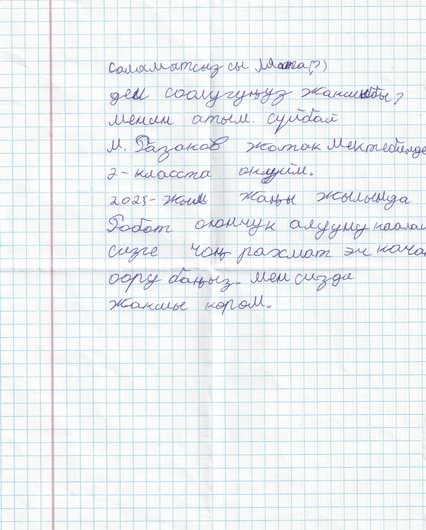 саламатсыз сы Мята(?)
ден соолугуңуз жакшыбы?
менин атым. суйбал
М. Разаков жатак мектебинде
2-класста окуйм.
2025-жыл жаңы жылында
Робот оюнчук алууну каалай
сизге чоң рахмат эч качан
оору баңыз. мен сизди
жакшы көрөм.